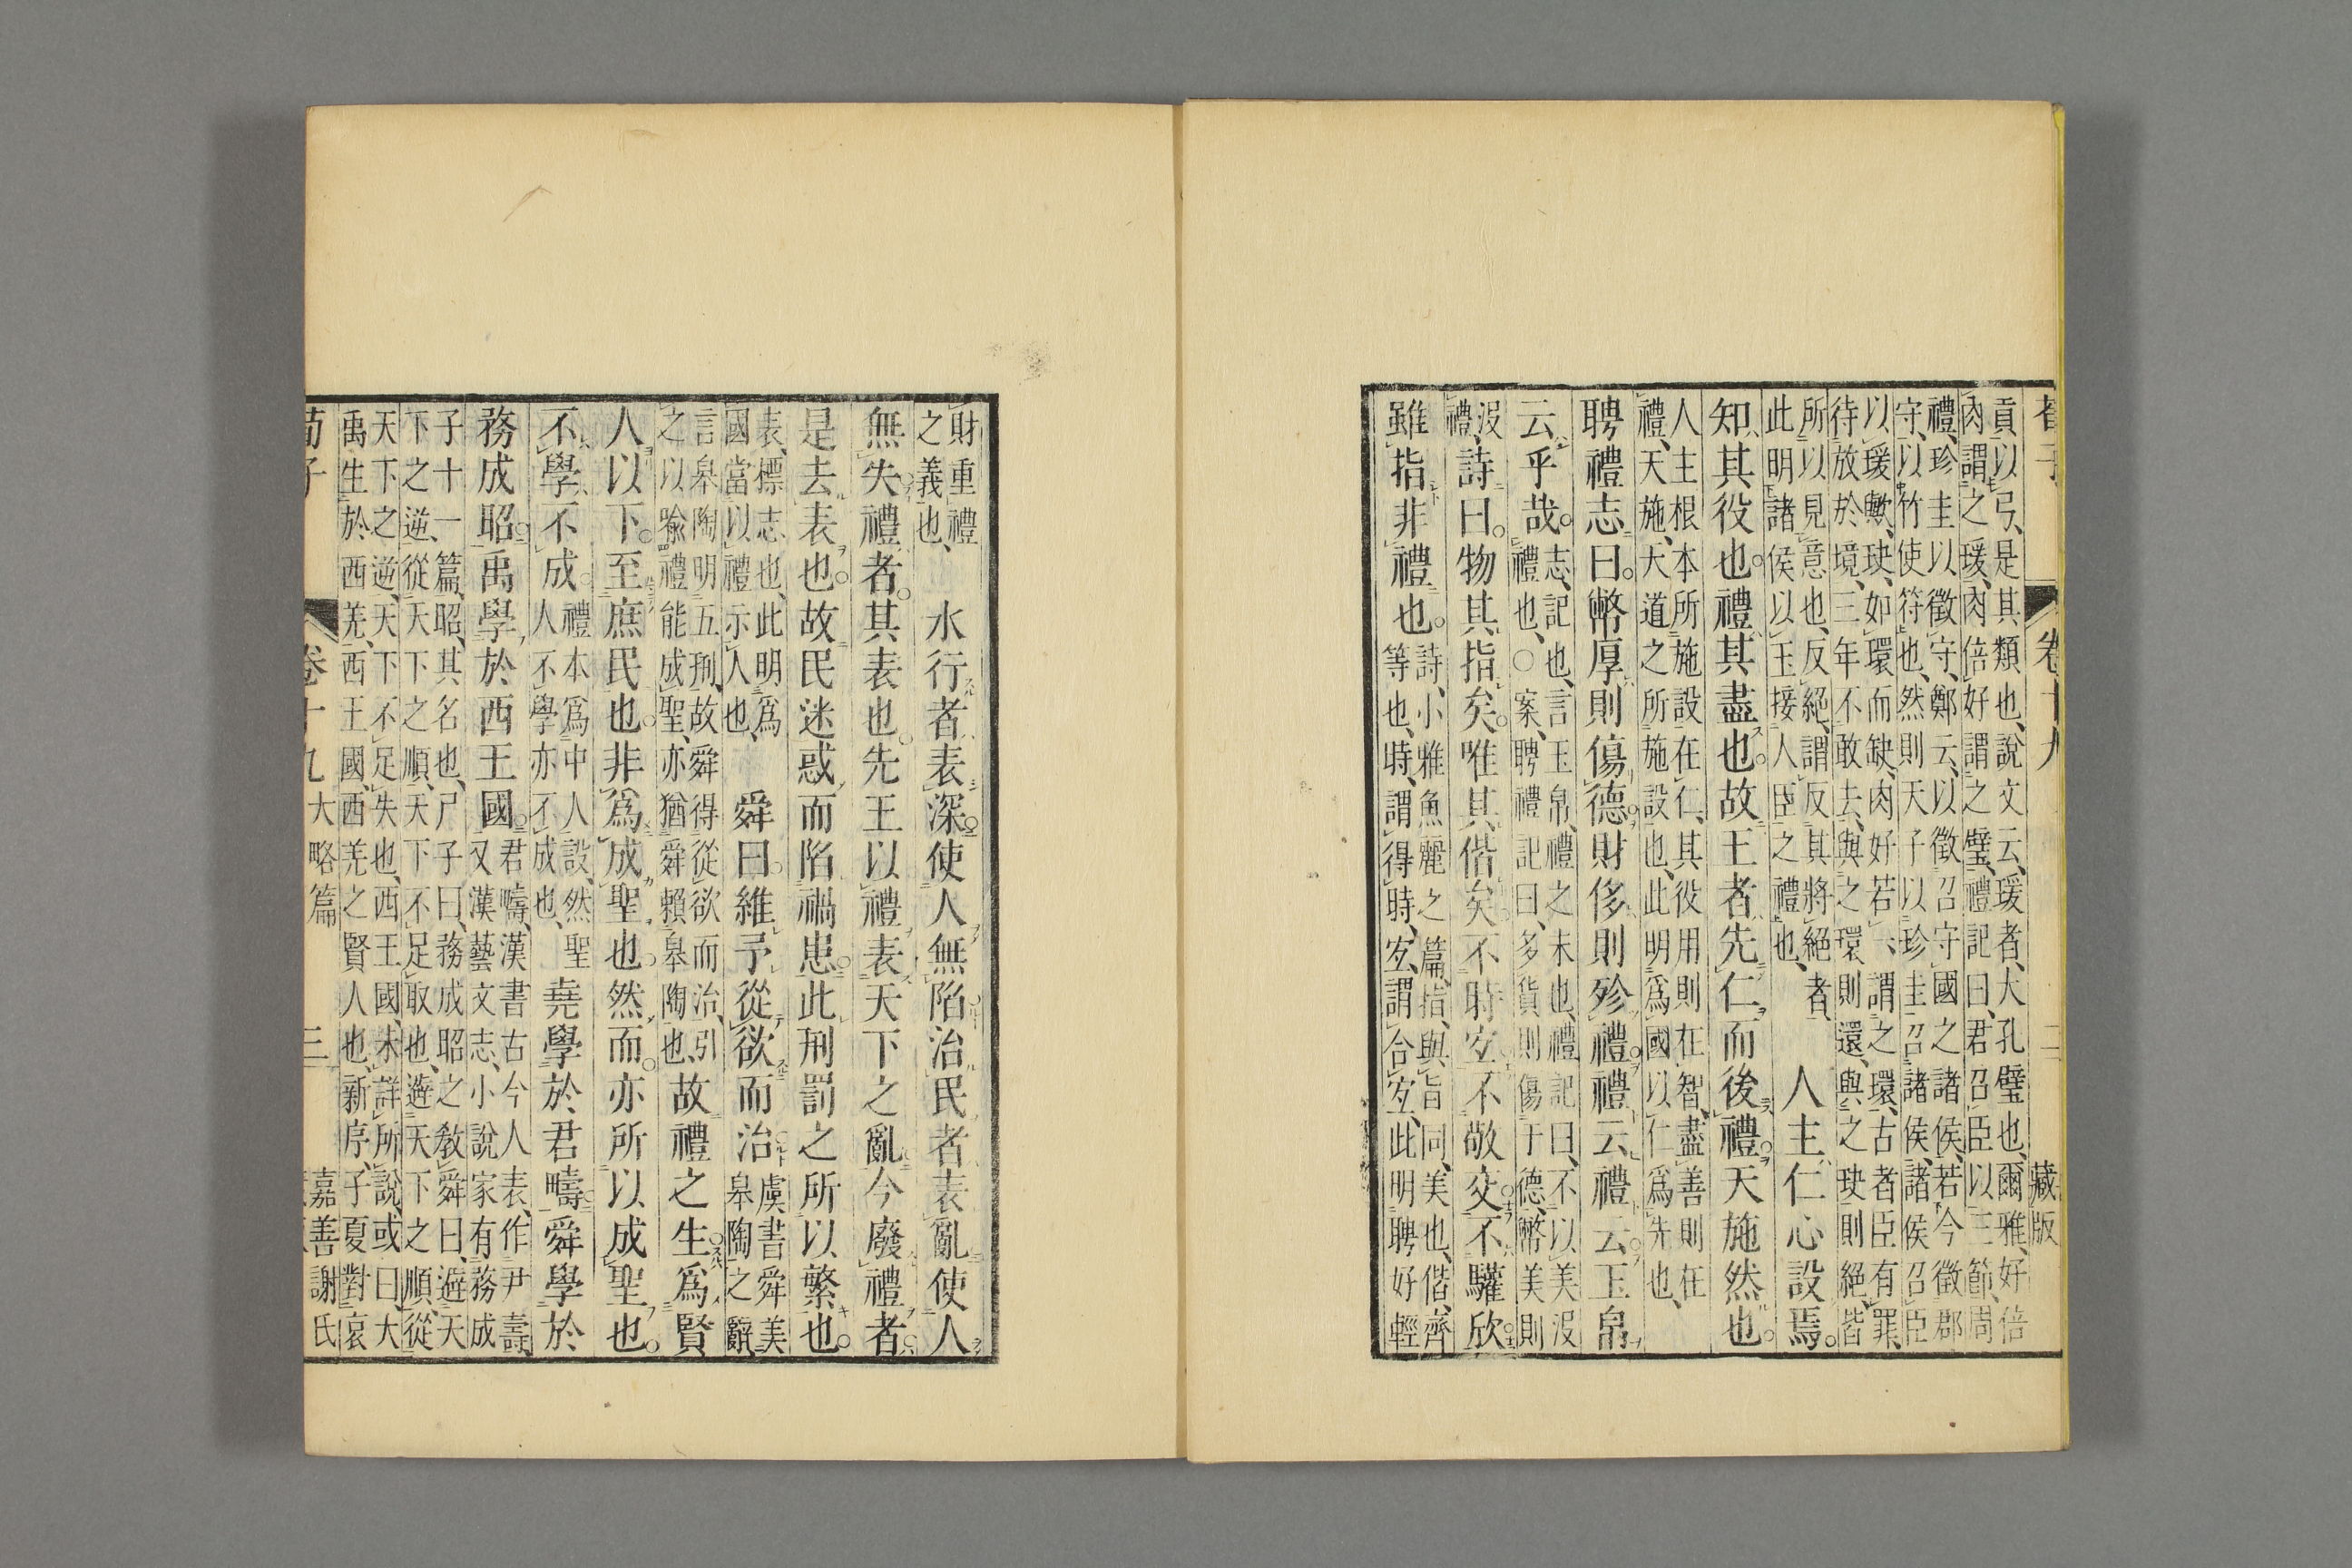 荀子 卷十九 二 藏版
貢以弓、是其類也、說文云、瑗者、大孔璧也、爾雅、好倍
肉謂之瑗、肉倍好謂之璧、禮記曰、君召臣以三節、周
禮、珍圭以徵守、鄭云、以徵召守國之諸侯、若今徵郡
守、以竹使符也、然則天子以珍圭召諸侯、諸侯召臣
以瑗歟、玦、如環而缺、肉好若一、謂之環、古者臣有罪、
待放於境、三年不敢去、與之環則還、與之玦則絕、皆
所以見意也、反絕、謂反其將絕者、
此明諸侯以玉接人臣之禮也、
人主仁心設焉。
知其役也。禮其盡也。故王者先仁而後禮。天施然也。
人主根本所施設在仁、其役用則在智、盡善則在
禮、天施、天道之所施設也、此明爲國以仁爲先也、
聘禮志曰。幣厚則傷德。財侈則殄禮。禮云禮云。玉帛
云乎哉。
志、記也、言玉帛、禮之末也、禮記曰、不以美沒
禮也、○案、聘禮記曰、多貨則傷于德、幣美則
沒禮、
詩曰。物其指矣。唯其偕矣。不時宐不敬交不驩欣。
雖指非禮也。
詩、小雅魚麗之篇、指、與旨同、美也、偕、齊
等也、時、謂得時、宐、謂合宐、此明聘好輕
財重禮
之義也、
水行者表深。使人無陷。治民者表亂使人
無失禮者。其表也。先王以禮表天下之亂今廢禮者
是去表也。故民迷惑而陷禍患。此刑罰之所以繁也。
表、標志也、此明爲
國當以禮示人也、
舜曰。維予從欲而治
虞書舜美
皋陶之辭、
言皋陶明五刑、故舜得從欲而治、引
之以喻禮能成聖、亦猶舜賴皋陶也、
故禮之生。爲賢
人以下。至庶民也。非爲成聖也。然而。亦所以成聖也。
不學不成
禮本爲中人設、然聖
人不學亦不成也、
堯學於君疇舜學於
務成昭禹學於西王國。
君疇、漢書古今人表、作尹壽、
又漢藝文志、小說家有務成
子十一篇、昭、其名也、尸子曰、務成昭之敎舜曰、避天
下之逆、從天下之順、天下不足取也、避天下之順、從
天下之逆、天下不足失也、西王國、未詳所說、或曰大
禹生於西羌、西王國、西羌之賢人也、新序、子夏對哀
荀子 卷十九 大略篇 三 嘉善謝氏